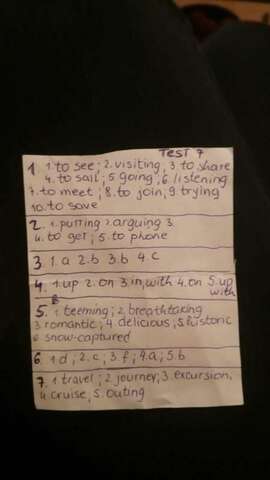 TEST 7
1 1. to see; 2. visiting; 3. to share
4. to sail; 5 going; 6. listening
7. to meet; 8. to join; 9. trying
10. to save
2. 1. putting 2 arguing 3.
4. to get; 5. to phone
3 1. a 2. b 3. b 4. c
4. 1. up 2. on 3. in, with 4. on 5. up
with
5. 1 teeming; 2. breathtaking
3. romantic; 4. delicious; 5. historic
6 snow-captured
6 1. d; 2. c; 3 f; 4. a; 5. b
7. 1 travel; 2 journey; 3. excursion,
4. cruise, 5. outing